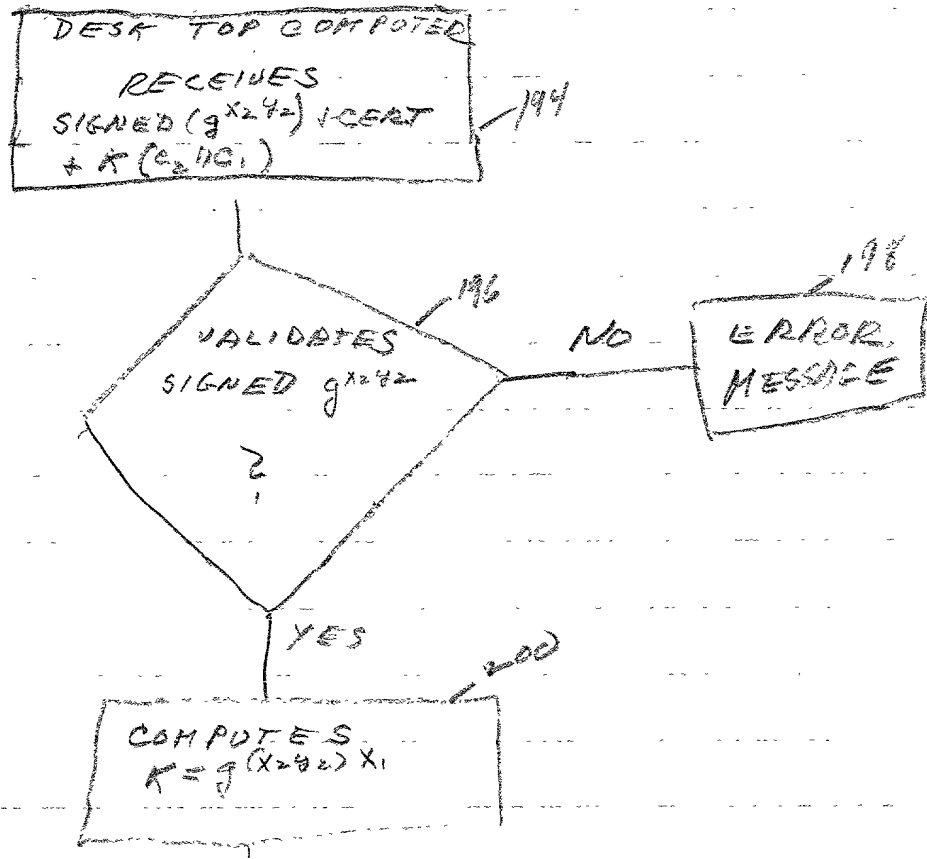 DESK TOP COMPUTER
RECEIVES
SIGNED (g^x₂y₂) + CERT
+ K (C₂ || C₁)
194
VALIDATES
SIGNED g^x₂y₂
?
196
NO
198
ERROR
MESSAGE
YES
200
COMPUTES
K = g^(x₂y₂) x₁